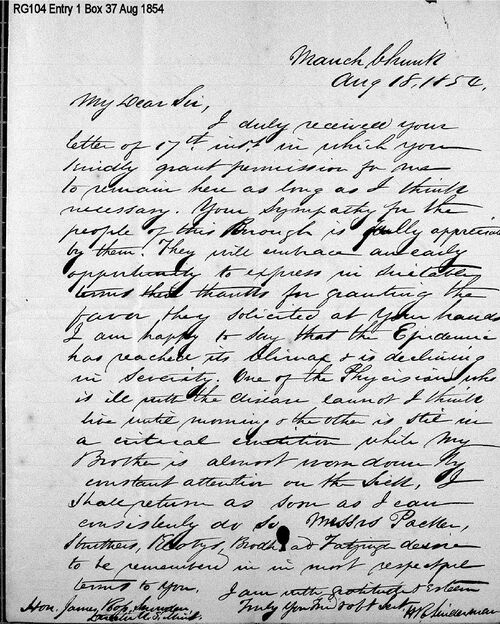 RG104 Entry 1 Box 37 Aug 1854
Mauch Chunk
Aug 18, 1854.
My Dear Sir,
I duly received your
letter of 17th inst. in which you
kindly grant permission for me
to remain here as long as I think
necessary. Your Sympathy for the
people of this Borough is fully appreciated
by them. They will embrace an early
opportunity to express in suitable
terms their thanks for granting the
favor they solicited at your hands
I am happy to say that the Epidemic
has reached its Climax & is declining
in Severity. One of the Physicians who
is ill with the disease cannot I think
live until morning & the other is still in
a critical condition while my
Brother is almost worn down by
constant attention on the Sick. I
Shall return as soon as I can
consistently do so. Messrs Packer,
Struthers,
desire
to be remembered in in most respectful
terms to you. I am with gratitude & esteem
Truly Your Frd & obt Sert
Hon. James Ross Snowden
Director U.S. Mint.
HR Linderman